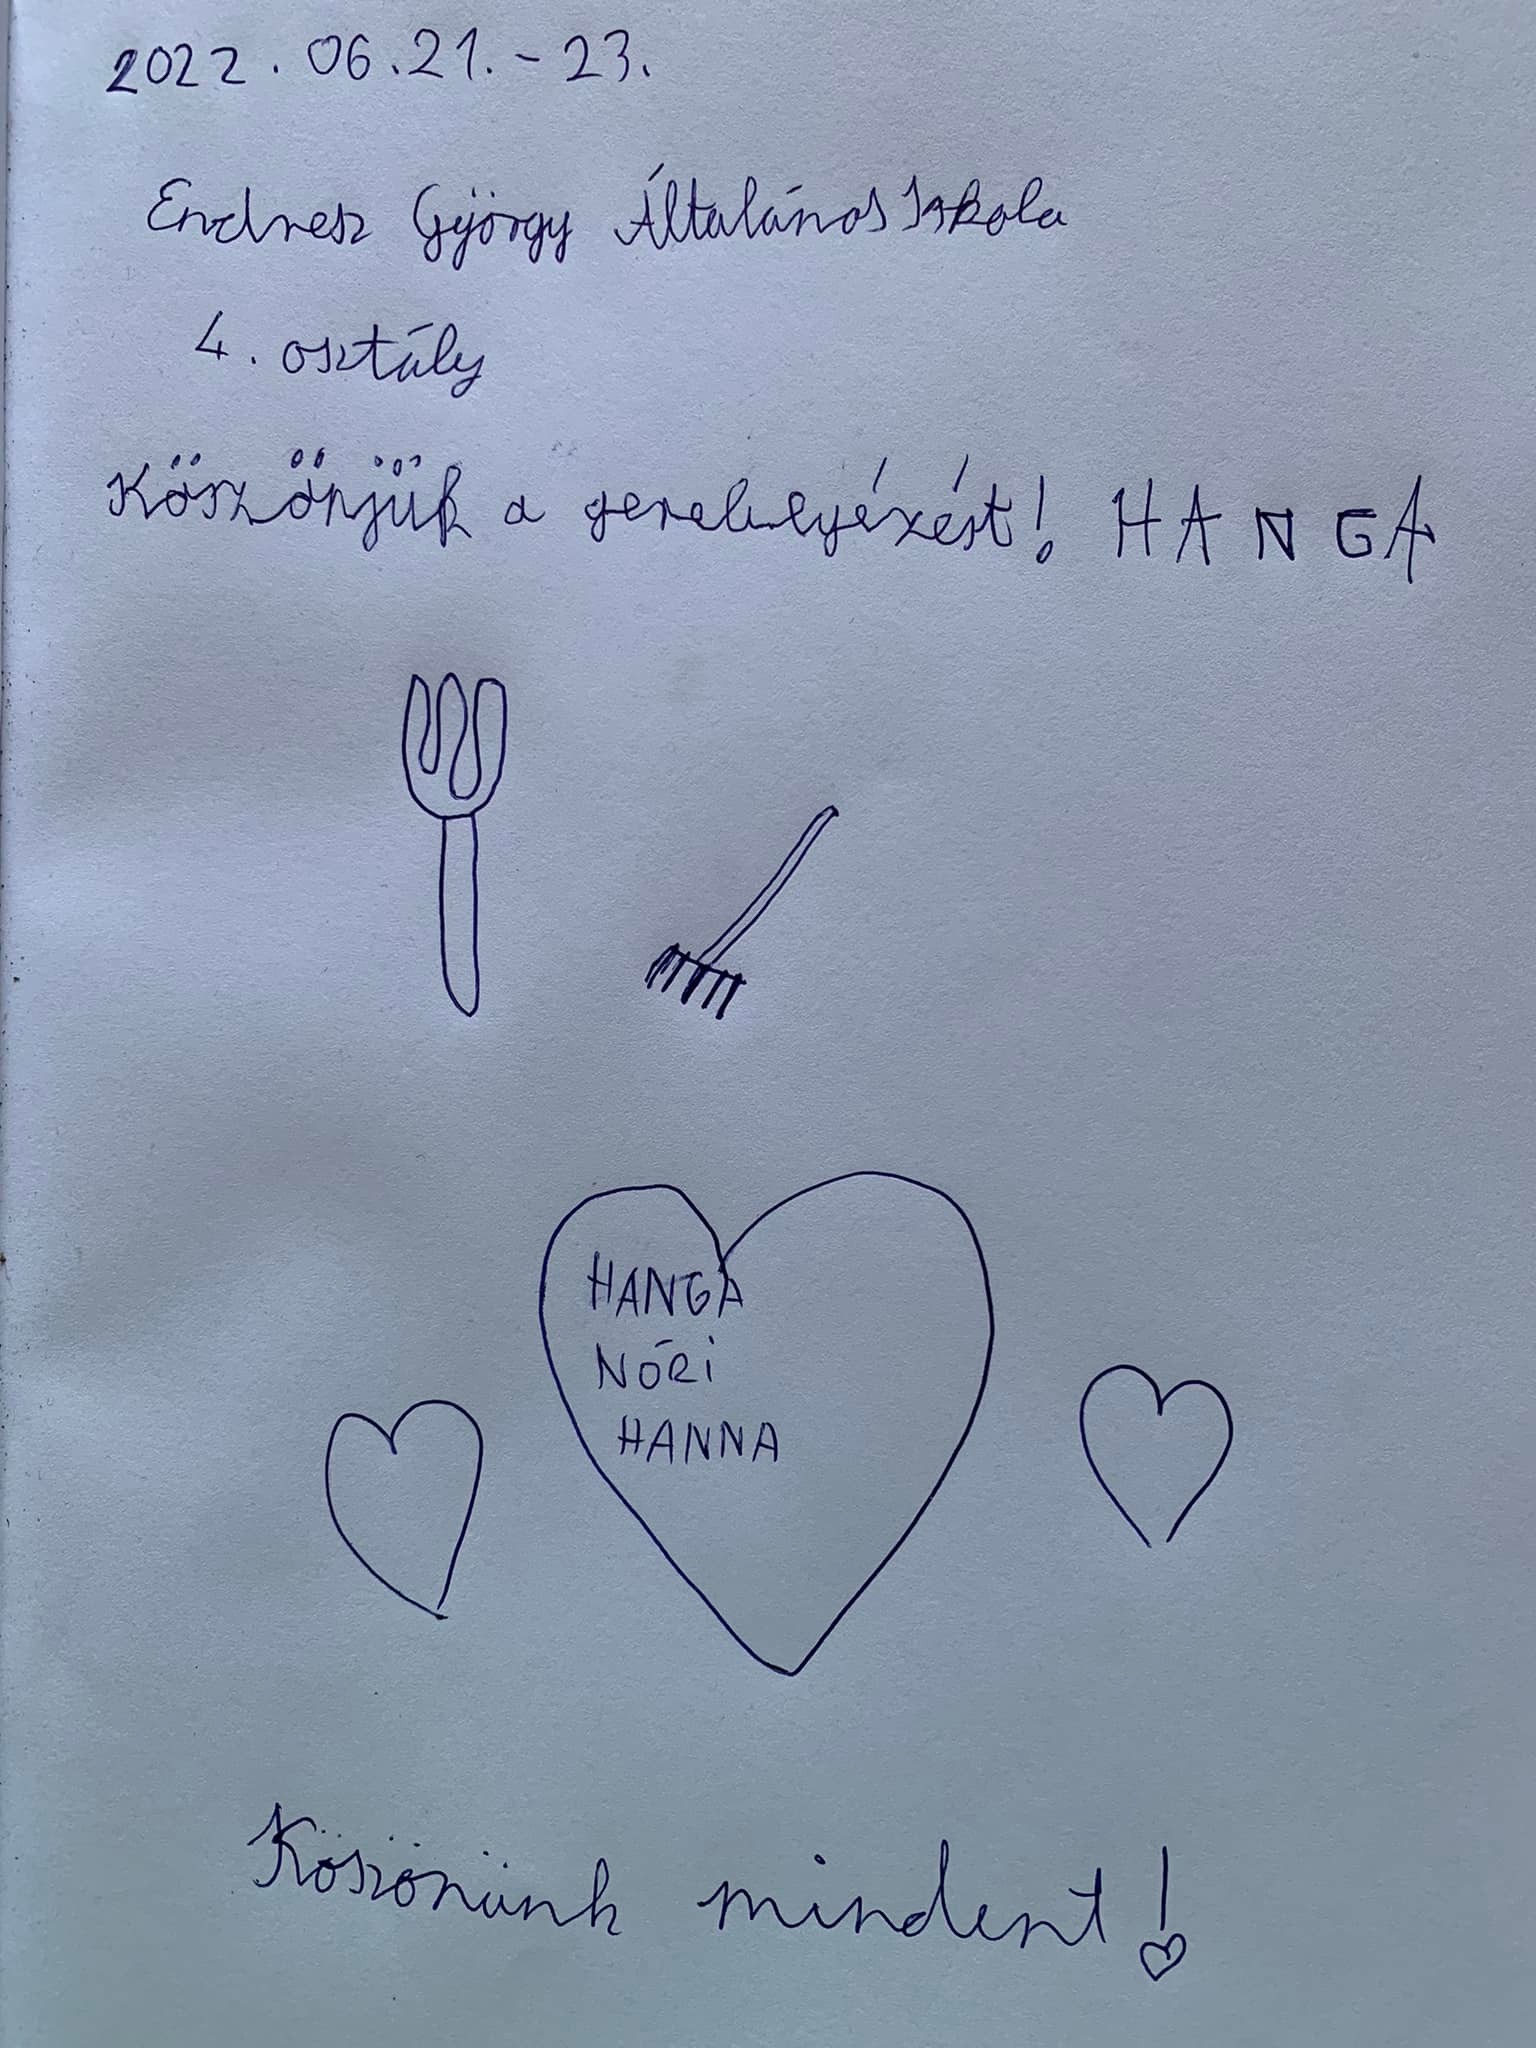 2022. 06.21. - 23.
Endresz György Általános Iskola
4. osztály
Köszönjük a gereblyézést! HANGA
HANGA
NÓRI
HANNA
Köszönünk mindent!